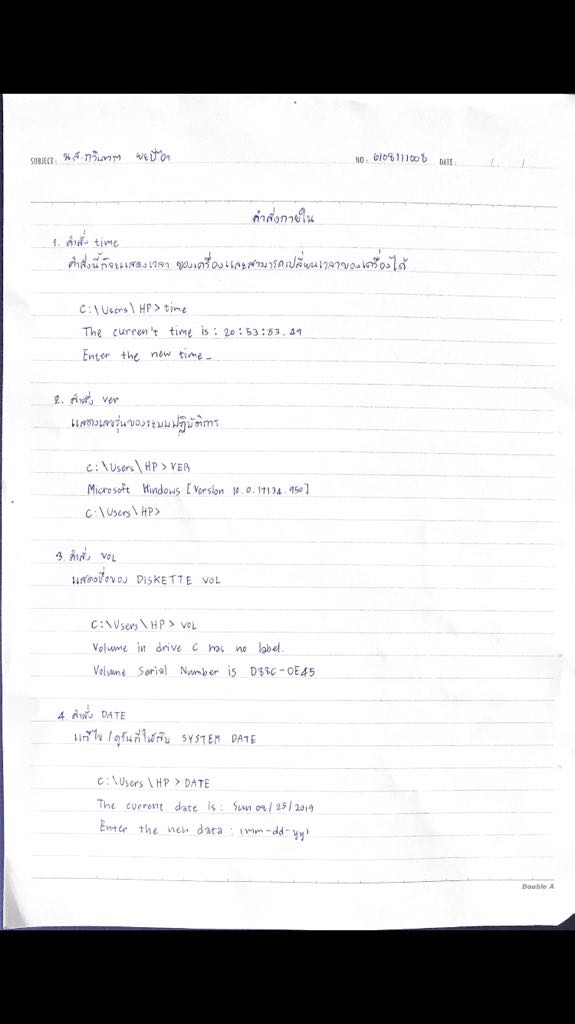 SUBJECT: น.ส. NO. 6108111008 DATE: / /
คำสั่งภายใน
1. คำสั่ง time
คำสั่งนี้ก็จะแสดงเวลา ของเครื่องและสามารถเปลี่ยนเวลาของเครื่องได้
C:\Users\HP> time
The current time is: 20:53:53.49
Enter the new time_
2. คำสั่ง ver
แสดงเลขรุ่นของระบบปฏิบัติการ
C:\Users\HP> VER
Microsoft Windows [Version 10.0.17134.950]
C:\Users\HP>
3. คำสั่ง VOL
แสดงชื่อของ DISKETTE VOL
C:\Users\HP> VOL
Volume in drive C has no label.
Volume Serial Number is D88C-0E45
4. คำสั่ง DATE
แก้ไข/ดูวันที่ให้กับ SYSTEM DATE
C:\Users\HP> DATE
The current date is: Sun 08/25/2019
Enter the new data: (mm-dd-yy)
Double A